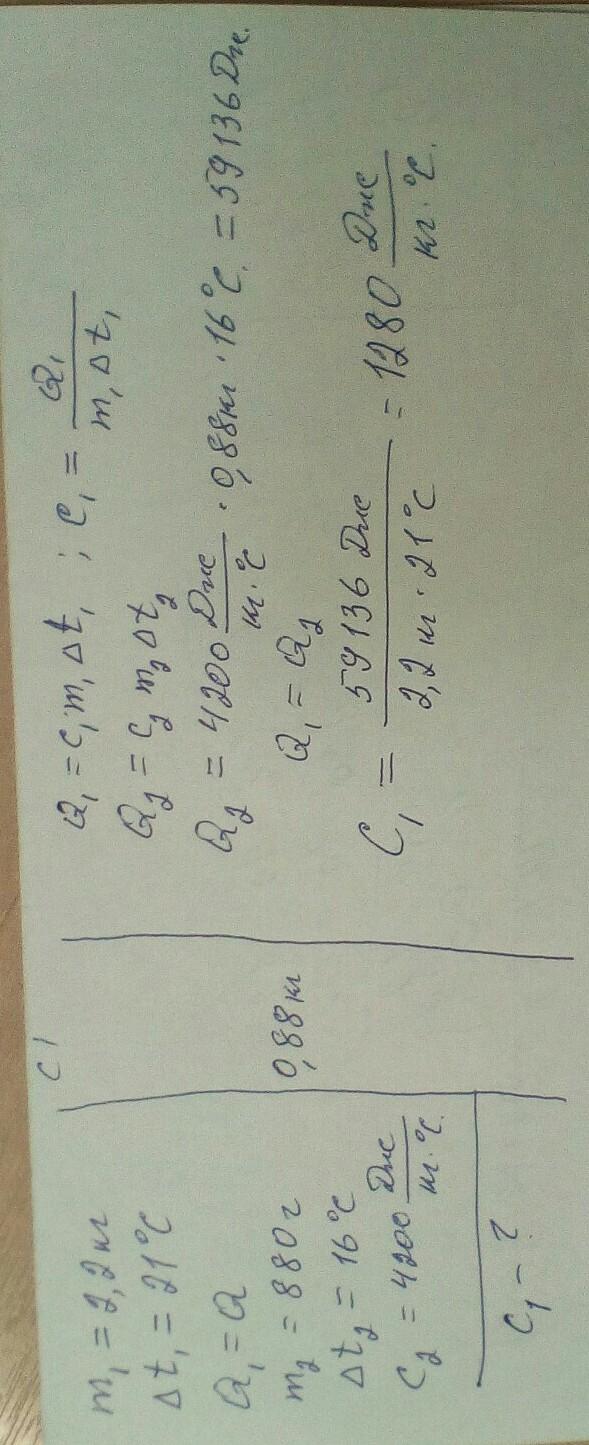 m₁ = 2,2 кг
Δt₁ = 21°C
Q₁ = Q
m₂ = 880 г
Δt₂ = 16°C
C₂ = 4200 Дж/кг·°C.
C₁ - ?
СИ
0,88 кг
Q₁ = C₁m₁Δt₁ ; C₁ = Q₁/m₁Δt₁
Q₂ = C₂ m₂ Δt₂
Q₂ = 4200 Дж/кг·°C · 0,88 кг · 16°C. = 59136 Дж.
Q₁ = Q₂
C₁ = 59136 Дж/2,2 кг · 21°C = 1280 Дж/кг·°C.